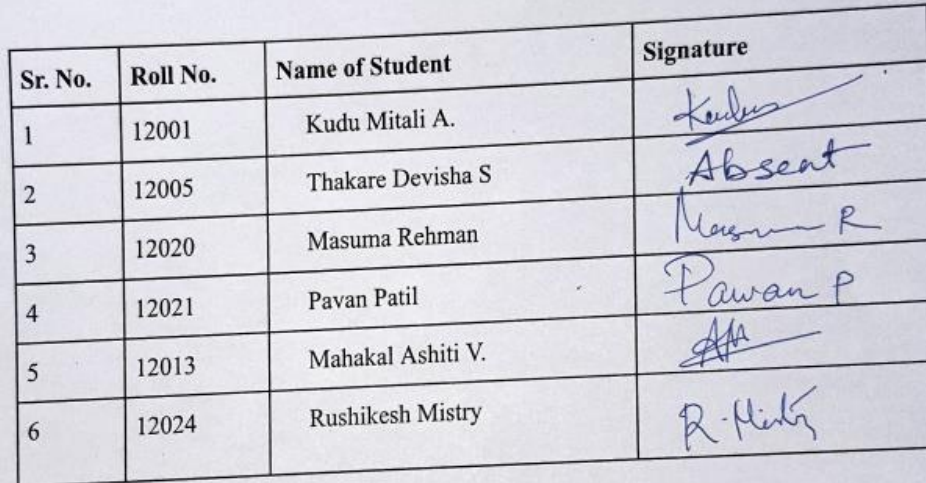 Sr. No. Roll No. Name of Student Signature
1 12001 Kudu Mitali A. Kudu
2 12005 Thakare Devisha S Absent
3 12020 Masuma Rehman Masuma R
4 12021 Pavan Patil Pawan P
5 12013 Mahakal Ashiti V. AM
6 12024 Rushikesh Mistry R. Mistry